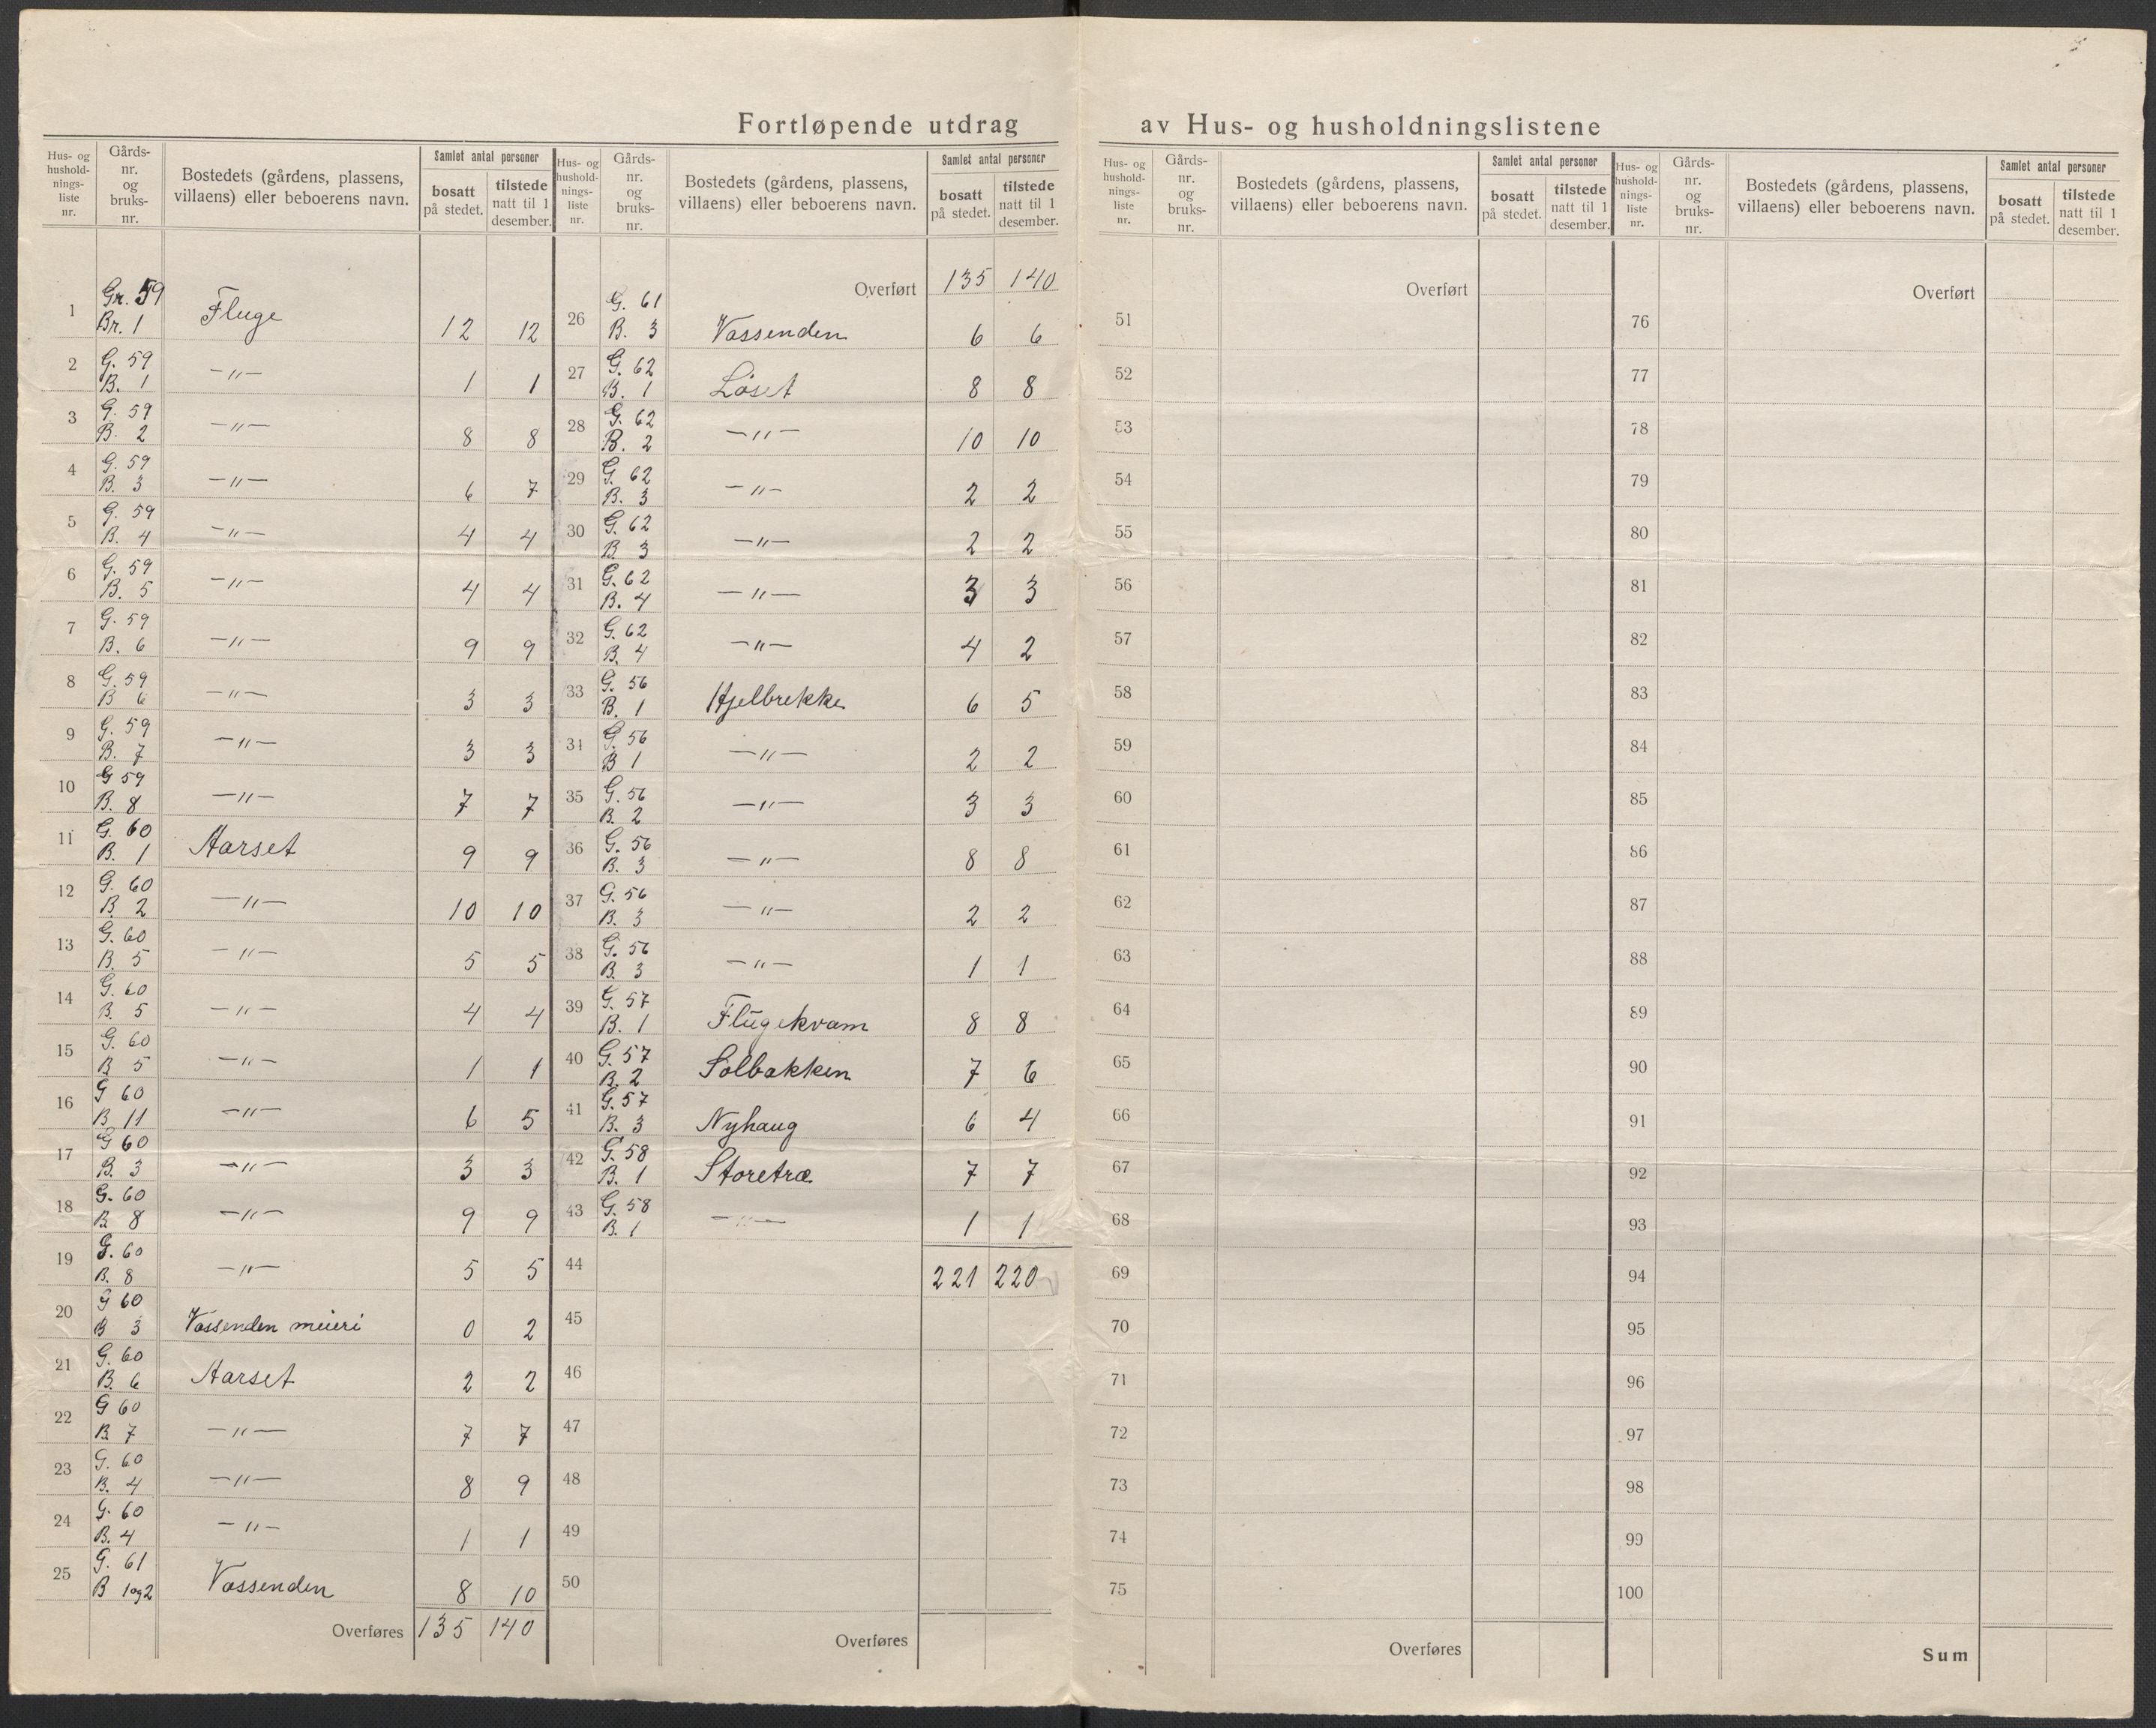 Fortløpende utdrag av Hus- og husholdningslistene
Hus- og husholdningsliste nr. | Gårds-nr. og bruks-nr. | Bostedets (gårdens, plassens, villaens) eller beboerens navn. | Samlet antal personer bosatt på stedet. | tilstede natt til 1 desember.
1 Gr. 59 Br. 1 Fluge 12 12
2 G. 59 B. 1 —"— 1 1
3 G. 59 B. 2 —"— 8 8
4 G. 59 B. 3 —"— 6 7
5 G. 59 B. 4 —"— 4 4
6 G. 59 B. 5 —"— 4 4
7 G. 59 B. 6 —"— 9 9
8 G. 59 B 6 —"— 3 3
9 G. 59 B. 7 —"— 3 3
10 G 59 B. 8 —"— 7 7
11 G. 60 B. 1 Aarset 9 9
12 G. 60 B. 2 —"— 10 10
13 G. 60 B. 5 —"— 5 5
14 G. 60 B. 5 —"— 4 4
15 G. 60 B 5 —"— 1 1
16 G 60 B. 11 —"— 6 5
17 G 60 B. 3 —"— 3 3
18 G. 60 B 8 —"— 9 9
19 G. 60 B. 8 —"— 5 5
20 G 60 B 3 Vassenden meieri 0 2
21 G. 60 B. 6 Aarset 2 2
22 G 60 B. 7 —"— 7 7
23 G. 60 B. 4 —"— 8 9
24 G. 60 B. 4 —"— 1 1
25 G. 61 B 1 og 2 Vassenden 8 10
Overføres 135 140
Hus- og husholdningsliste nr. | Gårds-nr. og bruks-nr. | Bostedets (gårdens, plassens, villaens) eller beboerens navn. | Samlet antal personer bosatt på stedet. | tilstede natt til 1 desember.
Overført 135 140
26 G. 61 B. 3 Vassenden 6 6
27 G. 62 B. 1 Löset 8 8
28 G. 62 B. 2 —"— 10 10
29 G. 62 B. 3 —"— 2 2
30 G. 62 B. 3 —"— 2 2
31 G. 62 B. 4 —"— 3 3
32 G. 62 B. 4 —"— 4 2
33 G. 56 B. 1 Hjelbrekke 6 5
34 G. 56 B 1 —"— 2 2
35 G. 56 B. 2 —"— 3 3
36 G. 56 B. 3 —"— 8 8
37 G. 56 B. 3 —"— 2 2
38 G. 56 B. 3 —"— 1 1
39 G. 57 B. 1 Flugekvam 8 8
40 G. 57 B. 2 Solbakken 7 6
41 G. 57 B. 3 Nyhaug 6 4
42 G. 58 B. 1 Storetræ 7 7
43 G. 58 B. 1 —"— 1 1
44 221 220
45
46
47
48
49
50
Overføres
Hus- og husholdningsliste nr. | Gårds-nr. og bruks-nr. | Bostedets (gårdens, plassens, villaens) eller beboerens navn. | Samlet antal personer bosatt på stedet. | tilstede natt til 1 desember.
Overført
51
52
53
54
55
56
57
58
59
60
61
62
63
64
65
66
67
68
69
70
71
72
73
74
75
Overføres
Hus- og husholdningsliste nr. | Gårds-nr. og bruks-nr. | Bostedets (gårdens, plassens, villaens) eller beboerens navn. | Samlet antal personer bosatt på stedet. | tilstede natt til 1 desember.
Overført
76
77
78
79
80
81
82
83
84
85
86
87
88
89
90
91
92
93
94
95
96
97
98
99
100
Sum